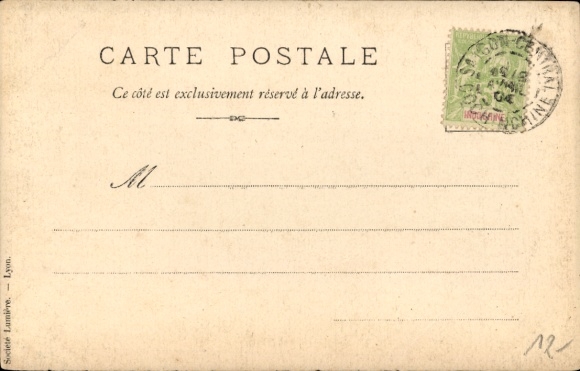 CARTE POSTALE
Ce côté est exclusivement réservé à l'adresse.
SAIGON-CENTRAL
COCHINCHINE
04
INDO-CHINE
M
Société Lumière. — Lyon.
12-